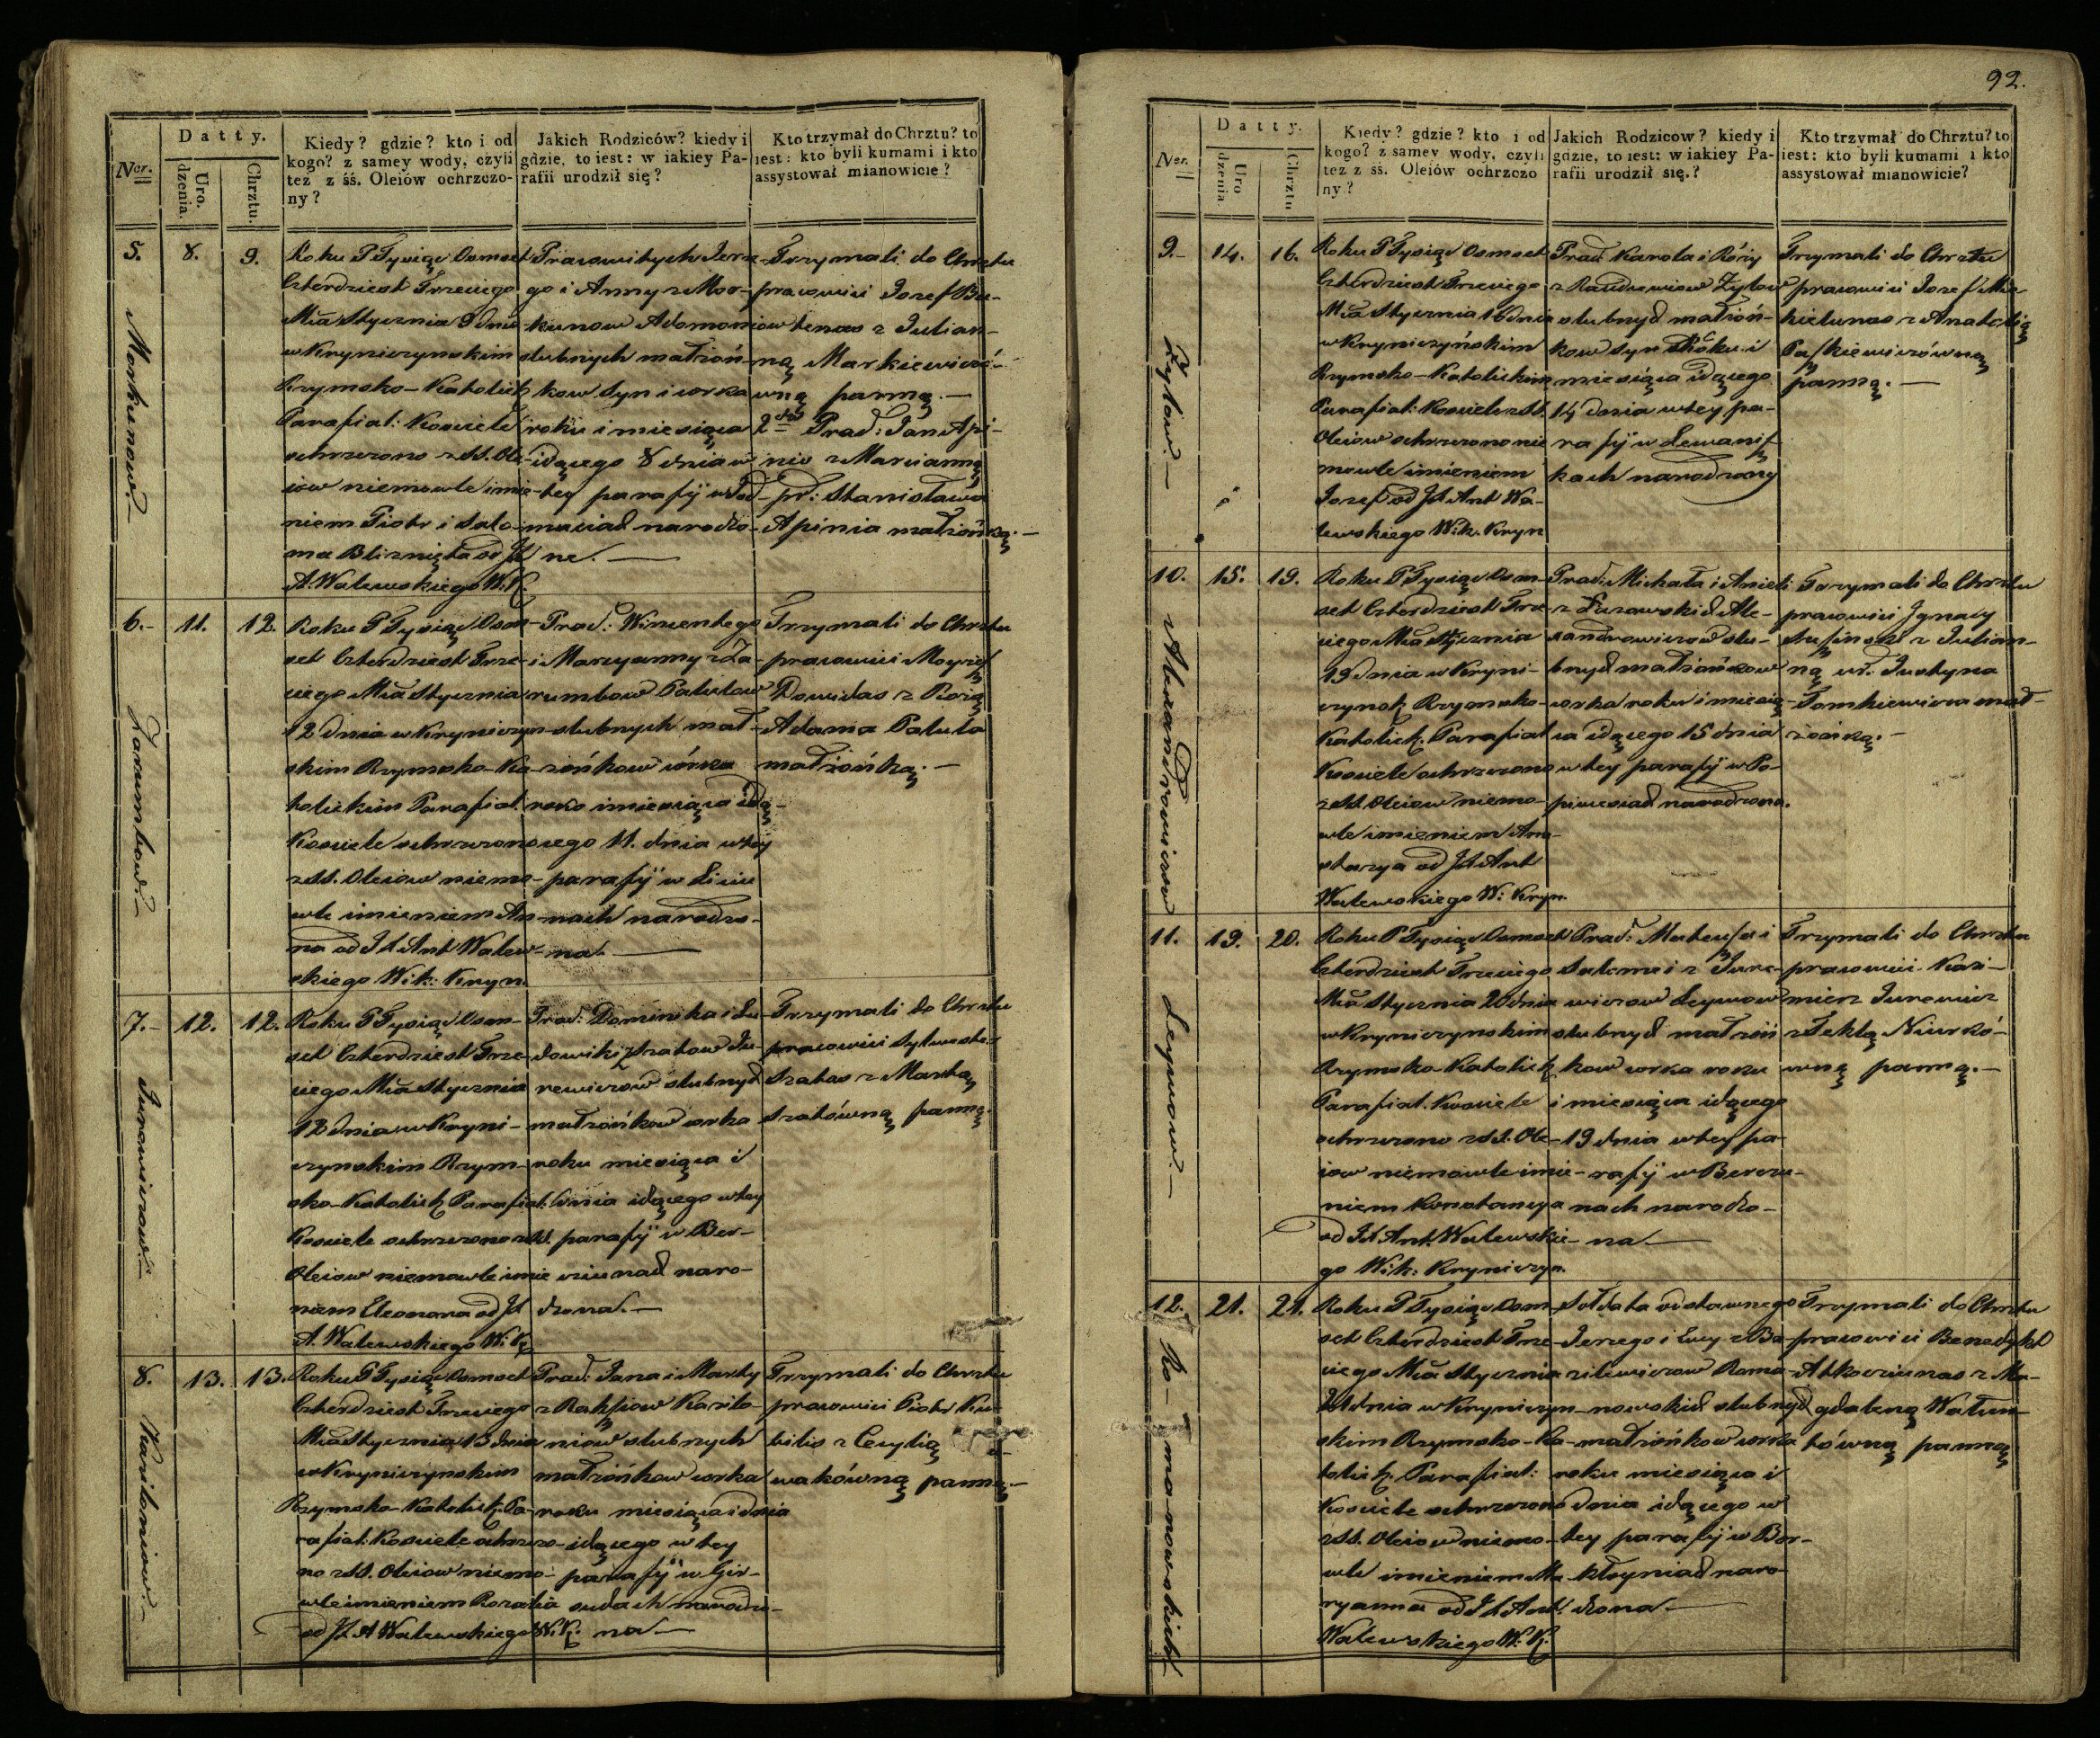 Ner.
Datty.
Uro.
dzenia.
Chrztu.
Kiedy? gdzie? kto i od
kogo? z samey wody, czyli
też z śś. Oleiów ochrzczo-
ny?
Jakich Rodziców? kiedy i
gdzie, to iest: w iakiey Pa-
rafii urodził się?
Kto trzymał do Chrztu? to
iest: kto byli kumami i kto
assystował mianowicie?
5.
8.
9.
Morkunow.
Roku P Tysiąc Osmset
Czterdziest Trzeciego
Mca Stycznia 9 dnia
w Kryniczynskim
Rzymsko-Katolick
Parafial: Kosciele
ochrzczono z SS. Ole-
iow niemowle imie-
niem Piotr i Salo-
mea Blizniętа od Jx
A. Walewskiego W. K.
Pracowitych Jerze-
go i Anny z Mor-
kunow Adomoniow
slubnych małżoń-
kow syn i corka
roku i miesiąca
idącego 8 dnia w
tey parafij w
naciach narodzo-
ne.
Trzymali do Chrztu
pracowici Jozef Bu-
tenas z Julian-
ną Markiewiczó-
wną panną.
2do Prac: Jan Api-
nis z Marcianną
pr: Stanisława
Apinia małżonką.
6.
11.
12.
Zarumbow.
Roku P Tysiąc Osm-
set Czterdziest Trze-
ciego Mca Stycznia
12 dnia w Kryniczyn-
skim Rzymsko-Ka-
tolickim Parafial.
Kosciele ochrzczono
z SS. Oleiow niemo-
wle imieniem An-
na od Jx Ant Walew-
skiego Wik: Kryn.
Prac: Wincentego
i Maryanny z Za-
rumbow Patulow
slubnych mał-
żońkow córka
roku i miesiąca idą-
cego 11. dnia w tey
parafij w
nach narodzo-
na.
Trzymali do Chrztu
pracowici Moyżesz
Dowidas z Rozą
Adama Patula
małżońką.
7.
12.
12.
Jurewiczow.
Roku P Tysiąc Osm-
set Czterdziest Trze-
ciego Mca Stycznia
12 dnia w Kryni-
czynskim Rzym-
sko-Katolick Parafial.
Kosciele ochrzczono z SS.
Oleiow niemowle imie
niem Eleonora od Jx
A. Walewskiego W. K.
Prac: Dominika i Lu-
dowiki z Szatow Ju-
rewiczow slubnych
małżońkow corka
roku miesiąca i
dnia idącego w tey
parafij w Ber-
cziunach naro-
dzona.
Trzymali do Chrztu
pracowici Sylwester
Szatas z Martą
Szatówną panną.
8.
13.
13.
Kariloniow.
Roku P Tysiąc Osmset
Czterdziest Trzeciego
Mca Stycznia 13 dnia
w Kryniczynskim
Rzymsko-Katolick. Pa-
rafial: Kosciele ochrzczo-
no z SS. Oleiow niemo-
wle imieniem Rozalia
od Jx A Walewskiego W. K.
Prac: Jana i Marty
z Rakszow Karilo-
niow slubnych
małżońkow corka
roku miesiąca i dnia
idącego w tey
parafij w Gir-
sudach narodzo-
na
Trzymali do Chrztu
pracowici Piotr Ku-
bilis z Cecylią
wakówną panną.
92.
Ner.
Datty.
Uro
dzenia.
Chrztu
Kiedy? gdzie? kto i od
kogo? z samey wody, czyli
też z śś. Oleiów ochrzczo
ny?
Jakich Rodzicow? kiedy i
gdzie, to iest: w iakiey Pa-
rafii urodził się.?
Kto trzymał do Chrztu? to
iest: kto byli kumami i kto
assystował mianowicie?
9.
14.
16.
Żylow.
Roku P Tysiąc Osmset
Czterdziest Trzeciego
Mca Stycznia 16 dnia
w Kryniczyńskim
Rzymsko-Katolickim
Parafial: Kosciele z SS.
Oleiow ochrzczono nie
mowle imieniem
Jozef od Jx Ant Wa-
lewskiego Wik. Kryn
Prac Karola i Róży
z Żylow
slubnych małżoń-
kow syn roku i
miesiąca idącego
14 dnia w tey pa-
rafij w Lewanisz
kach narodzony
Trzymali do Chrztu
pracowici Jozef Mi-
kielunas z Anatolią
Paszkiewiczówną
panną.
10.
15.
19.
Alexandrowiczow
Roku P Tysiąc Osm-
set Czterdziest Trze-
ciego Mca Stycznia
19 dnia w Kryni-
czynsk Rzymsko-
Katolick. Parafial
Kosciele ochrzczono
z SS. Oleiow niemo-
wle imieniem Ana-
stazya od Jx Ant
Walewskiego W: Kryn.
Prac: Michała i Anieli
z Łazowskich Ale-
xandrowiczow slu-
bnych małżońkow
corka roku i miesią-
ca idącego 15 dnia
w tey parafij w Po-
piwesiach narodzona.
Trzymali do Chrztu
pracowici Ignacy
z Julian-
ną ur. Justyna
Tomkiewicza mał-
żońką.
11.
19.
20.
Leymow.
Roku P Tysiąc Osmset
Czterdziest Trzeciego
Mca Stycznia 20 dnia
w Kryniczynskim
Rzymsko-Katolick
Parafial. Kosciele
ochrzczono z SS. Ole-
iow niemowle imie-
niem Konstancya
od Jx Ant. Walewskie-
go Wik: Kryniczyn.
Prac: Mateusza i
Salomei z Jure-
wiczow Leymow
slubnych małżoń
kow corka roku
i miesiąca idącego
19 dnia w tey pa-
rafij w Berczu-
nach narodzo-
na.
Trzymali do Chrztu
pracowici Kazi-
mierz Jurewicz
z Teklą Niurkó-
wną panną.
12.
21.
21.
Ro-manowskich
Roku P Tysiąc Osm-
set Czterdziest Trze-
ciego Mca Stycznia
21 dnia w Kryniczyn-
skim Rzymsko-Ka-
tolick. Parafial:
Kosciele ochrzczono
z SS. Oleiow niemo-
wle imieniem Ma-
ryanna od Jx Ant.
Walewskiego W. K.
Sołdata odstawnego
Jerzego i Ewy z Ba-
zilewiczow Roma-
nowskich slubnych
małżońkow corka
roku miesiąca i
dnia idącego w
tey parafij w Bor-
kłoyniach naro-
dzona.
Trzymali do Chrztu
pracowici Benedykt
Atkocziunas z Ma-
gdaleną Wałun-
tówną panną